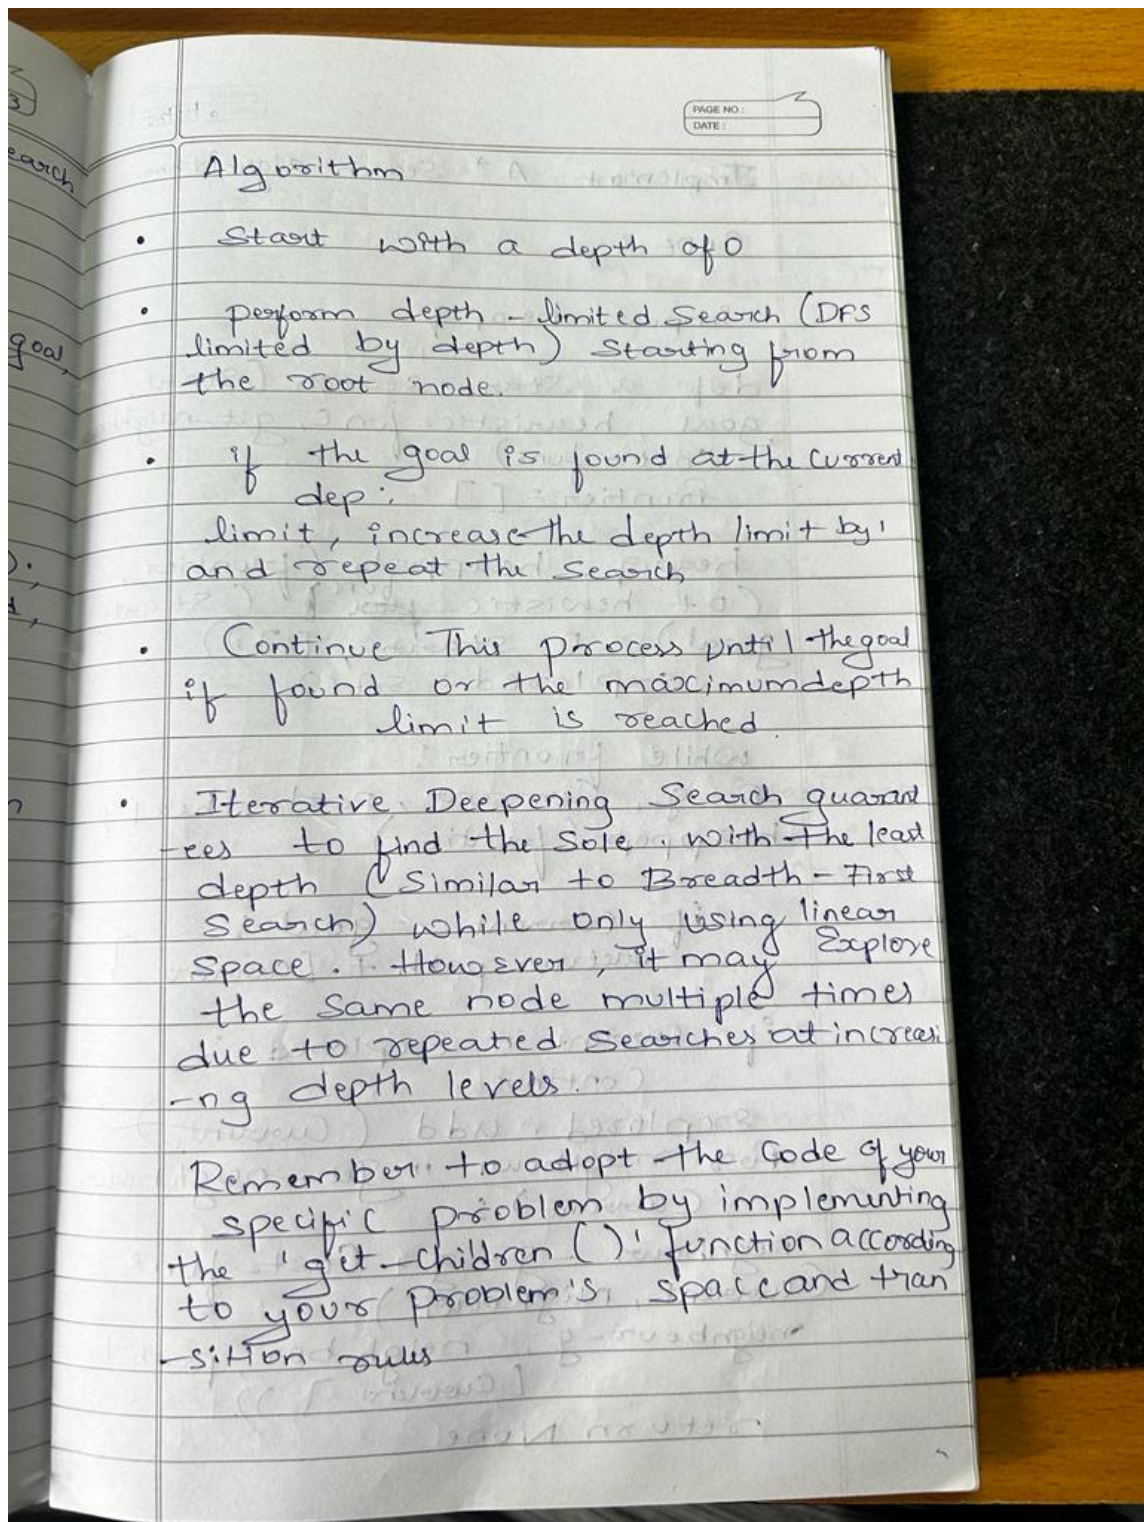 3
PAGE NO :
DATE :
earch
Algorithm
• Start with a depth of 0
• perform depth - limited Search (DFS
goal,
limited by depth) Starting from
the root node.
• if the goal is found at the current
dep :
limit, increase the depth limit by 1
and repeat the Search
• Continue This process until the goal
if found or the maximum depth
limit is reached.
• Iterative Deepening Search guarant
-ees to find the Sole . with The least
depth (Similar to Breadth - First
Search) while only using linear
space . However , it may Explore
the Same node multiple times
due to repeated Searches at increasi
-ng depth levels.
Remember to adopt the Code of your
specific problem by implementing
the 'get-children ()' function according
to your problem's space and tran
-sition rules